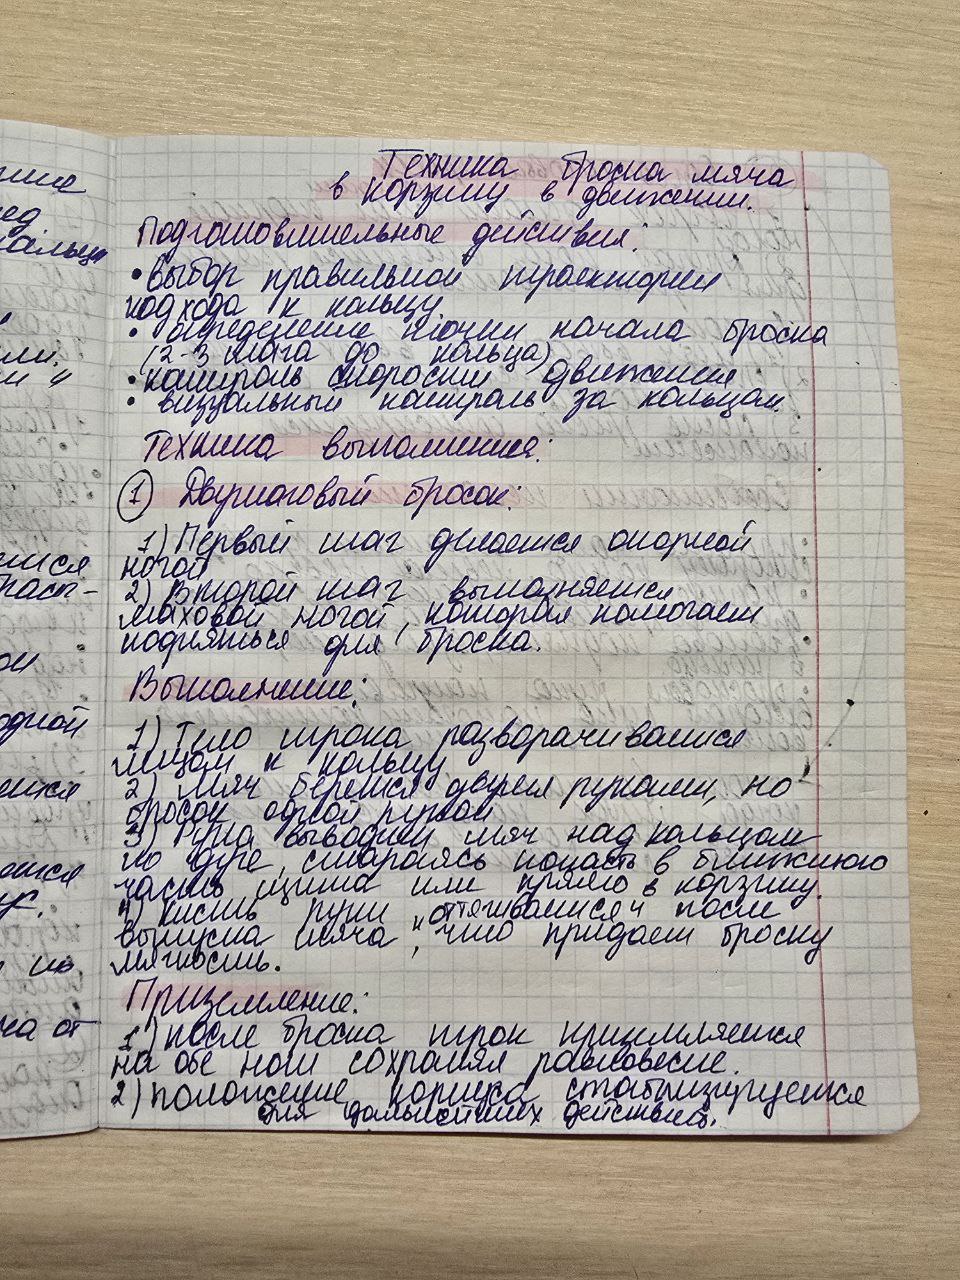 Техника броска мяча
в корзину в движении.
Подготовительные действия:
• выбор правильной траектории
подхода к кольцу
• определение точки начала броска
(2-3 шага до кольца)
• контроль скорости движения
• визуальный контроль за кольцом.
Техника выполнения:
1 Двушаговый бросок:
1) Первый шаг делается опорной
ногой
2) Второй шаг выполняется
маховой ногой, которая помогает
подняться для броска.
Выполнение:
1) Тело игрока разворачивается
лицом к кольцу
2) Мяч берется двумя руками, но
бросок одной рукой
3) Рука выводит мяч над кольцом
по дуге, стараясь попасть в ближнюю
часть щита или прямо в корзину.
4) Кисть руки "оттягивается" после
выпуска мяча, что придает броску
мягкость.
Приземление:
1) после броска игрок приземляется
на обе ноги сохраняя равновесие.
2) положение корпуса стабилизируется
для дальнейших действий.